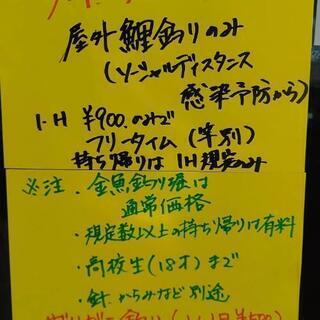 屋外鯉釣りのみ
(ソーシャルディスタンス
感染予防から)
1.H ¥900.のみで
フリータイム(竿別)
持ち帰りは1H規定のみ
※注.金魚釣り堀は
通常価格
・規定数以上の持ち帰りは有料
・高校生(18才)まで
・針.からみなど別途